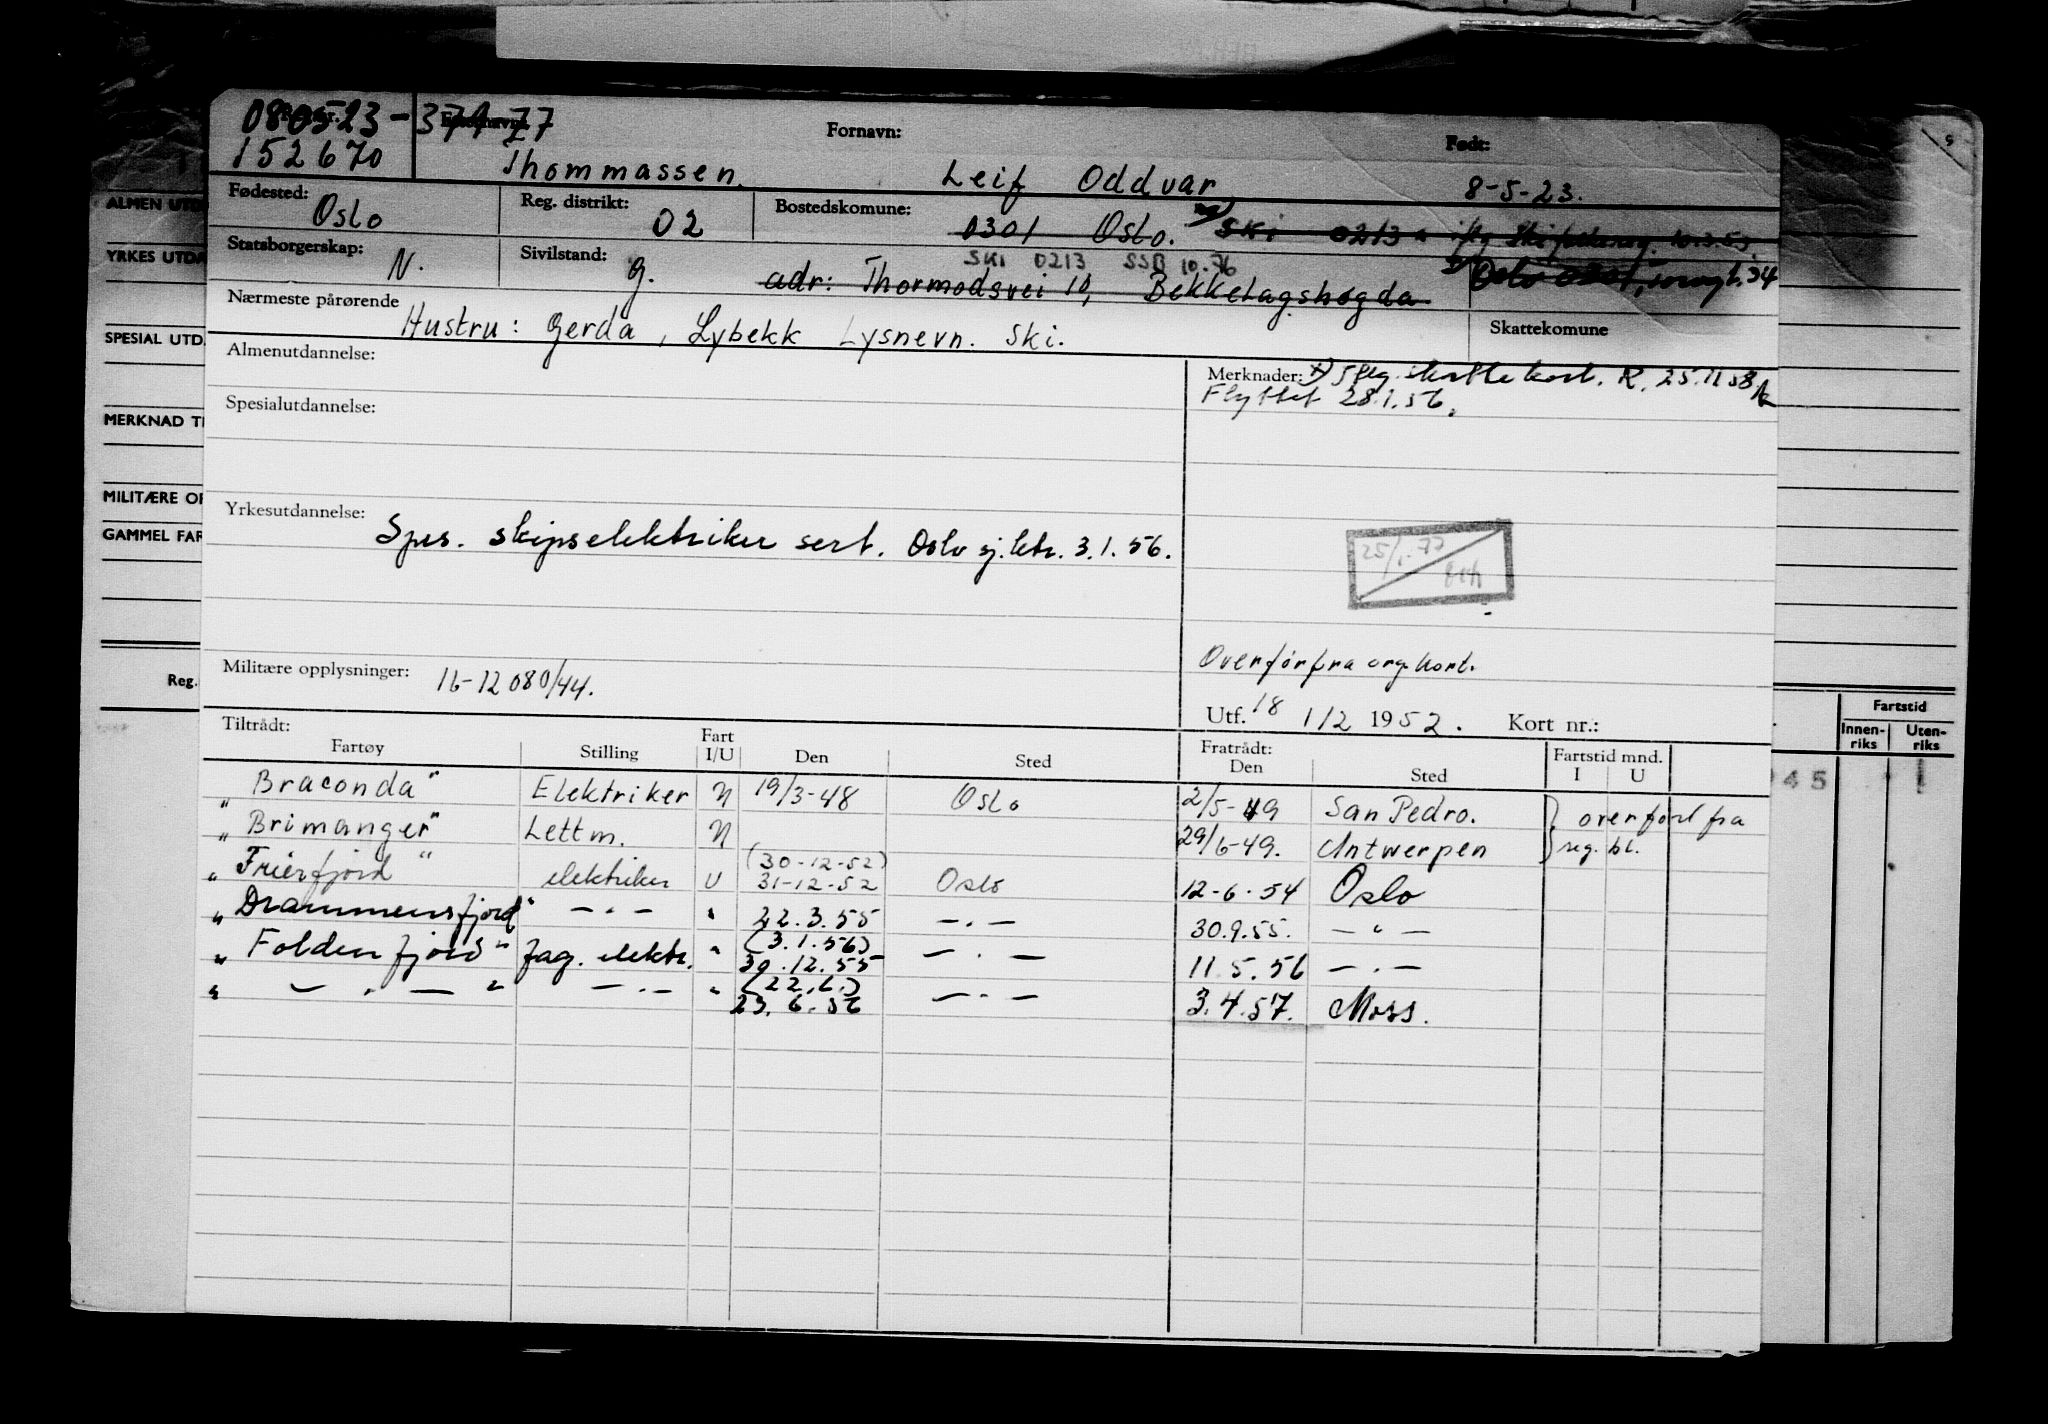 080523-37977
152670
Thommassen.
Fornavn:
Leif Oddvar
Født:
8-5-23.
Fødested:
Oslo
Reg. distrikt:
02
Bostedskomune:
0301 Oslo.
Ski 0213
Statsborgerskap:
N.
Sivilstand:
g.
SKI 0213 SSB 10.76
adr: Thormodsvei 10, Bekkelagshøgda
Nærmeste pårørende
Hustru: Gerda, Lybekk Lysnevn. Ski.
Skattekomune
Almenutdannelse:
Merknader: x) iflg. skattekort. R. 25.11.58
Flyttet 28.1.56.
Spesialutdannelse:
Yrkesutdannelse:
Spes. skipselektriker sert. Oslo sj.ktr. 3.1.56.
25/1.77
Militære opplysninger:
16-12080/44.
Overført fra org.kort.
Utf. 18/12 1952. Kort nr.:
Tiltrådt:
Fartøy Stilling Fart I/U Den Sted Fratrådt: Den Sted Fartstid mnd. I U
"Braconda" Elektriker N 19/3-48 Oslo 2/5-49 San Pedro. overført fra
"Brimanger" Lettm. N 29/6-49. Antwerpen reg. bl.
"Frierfjord" elektriker U (30-12-52) 31-12-52 Oslo 12-6-54 Oslo
"Drammensfjord" — " — " 22.3.55 — " — 30.9.55. — " —
"Foldenfjord" fag. elektr. " (3.1.56) 30.12.55 — " — 11.5.56 — " —
" — " — " — " — " (22.6.) 23.6.56 — " — 3.4.57. Moss.
ALMEN UTD
YRKES UTDA
SPESIAL UTD.
MERKNAD TI
MILITÆRE OP
GAMMEL FAR
Reg.
Fartstid
Innen-riks
Uten-riks
945